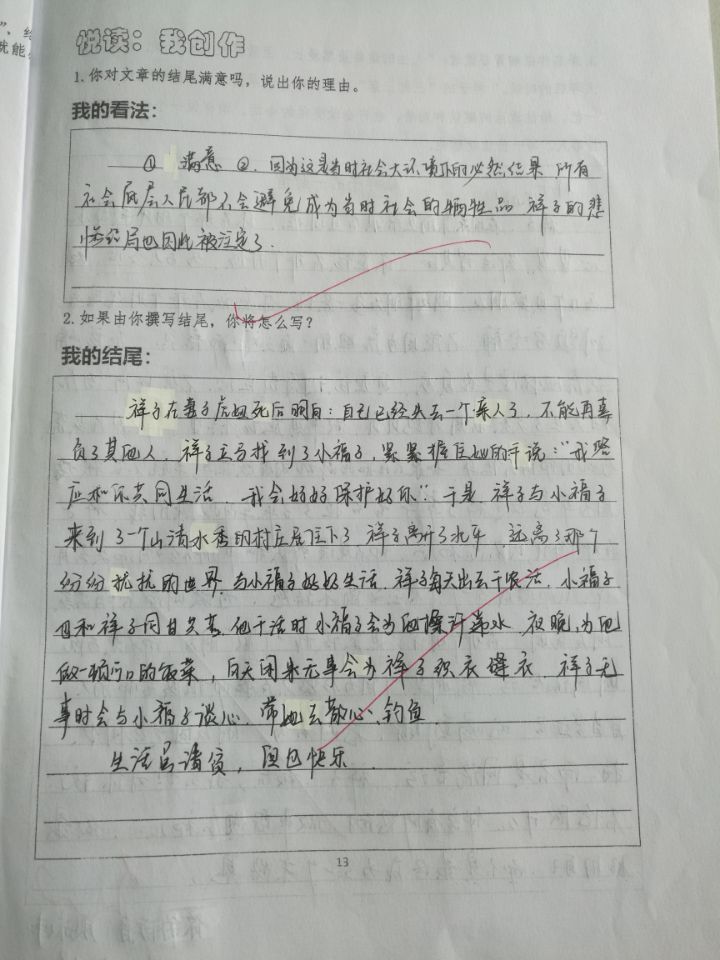 ”，结
就能
悦读：我创作
1.你对文章的结尾满意吗，说出你的理由。
我的看法：
① 满意 ②. 因为这是当时社会大环境下的必然结果 所有
社会底层人民都不会避免成为当时社会的牺牲品 祥子的悲
惨结局也因此被注定了.
2.如果由你撰写结尾，你将怎么写？
我的结尾：
祥子在妻子虎妞死后明白：自己已经失去一个亲人了，不能再辜
负了其他人，祥子立马找到了小福子，紧紧握住她的手说：“我答
应和你共同生活，我会好好保护好你”. 于是 祥子与小福子
来到了一个山清水秀的村庄居住下了 祥子离开了水车 远离了那个
纷纷扰扰的世界. 与小福子好好生活. 祥子每天出去干农活，小福子
也和祥子同甘共苦. 他干活时小福子会为他擦汗带水 夜晚，为他
做一顿可口的饭菜，白天闲来无事会为祥子织衣缝衣. 祥子无
事时会与小福子谈心. 带她去散心、钓鱼.
生活虽清贫，但也快乐.
13